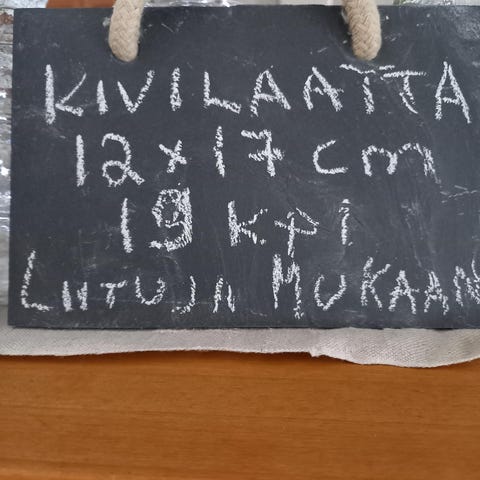 KIVILAATTA
12 x 17 cm
19 kpi
LIITUJA MUKAAN